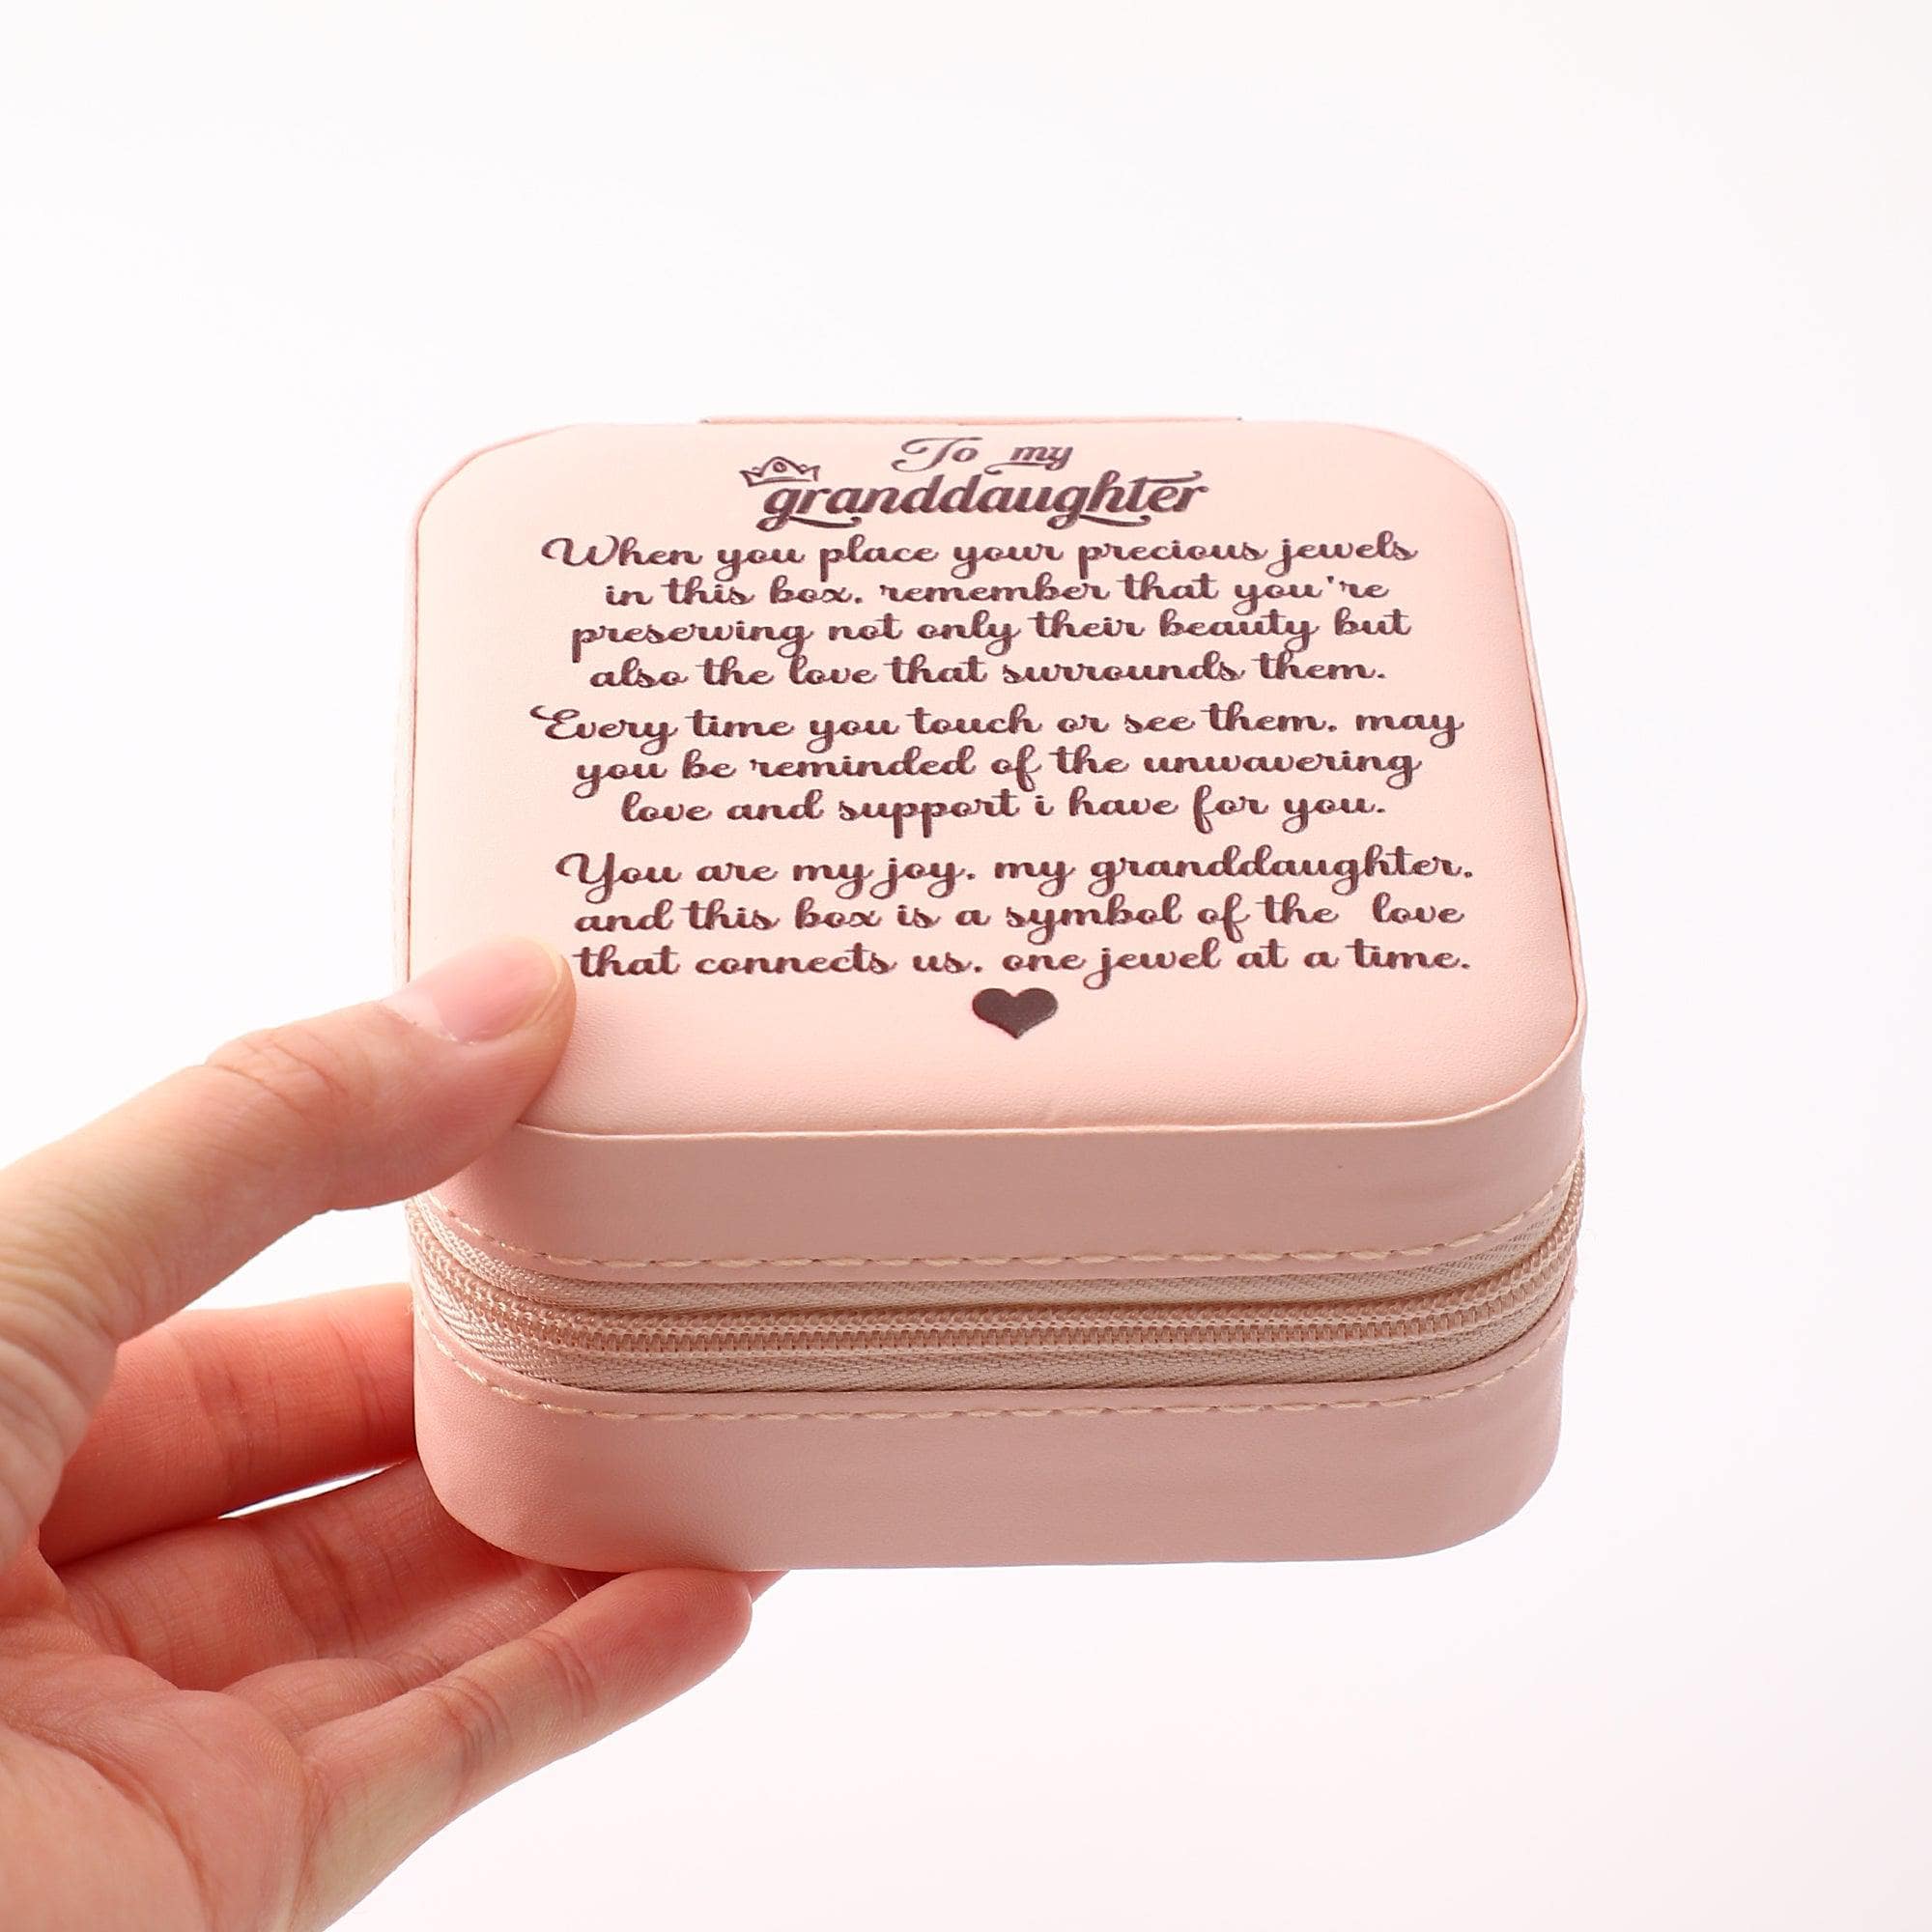 To my
granddaughter
When you place your precious jewels
in this box, remember that you're
preserving not only their beauty but
also the love that surrounds them.
Every time you touch or see them, may
you be reminded of the unwavering
love and support i have for you.
You are my joy, my granddaughter,
and this box is a symbol of the love
that connects us, one jewel at a time.